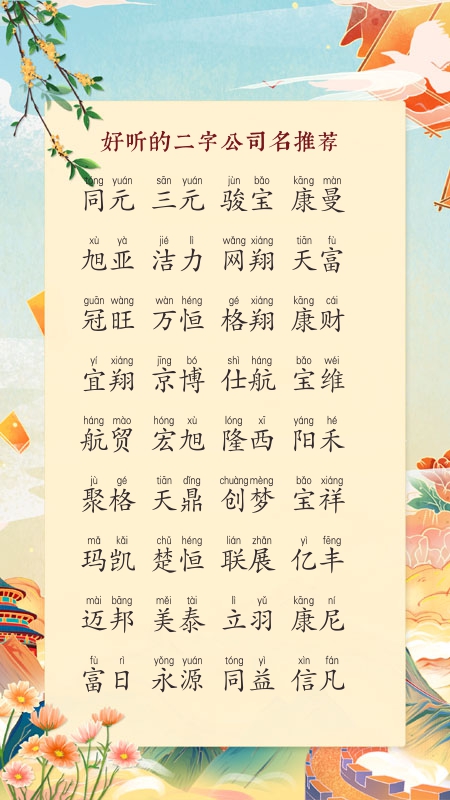 好听的二字公司名推荐
tóng yuán sān yuán jùn bǎo kāng màn
同元 三元 骏宝 康曼
xù yà jié lì wǎng xiáng tiān fù
旭亚 洁力 网翔 天富
guān wàng wàn héng gé xiáng kāng cái
冠旺 万恒 格翔 康财
yí xiáng jīng bó shì háng bǎo wéi
宜翔 京博 仕航 宝维
háng mào hóng xù lóng xī yáng hé
航贸 宏旭 隆西 阳禾
jù gé tiān dǐng chuàng mèng bǎo xiáng
聚格 天鼎 创梦 宝祥
mǎ kǎi chǔ héng lián zhǎn yì fēng
玛凯 楚恒 联展 亿丰
mài bāng měi tài lì yǔ kāng ní
迈邦 美泰 立羽 康尼
fù rì yǒng yuán tóng yì xìn fán
富日 永源 同益 信凡